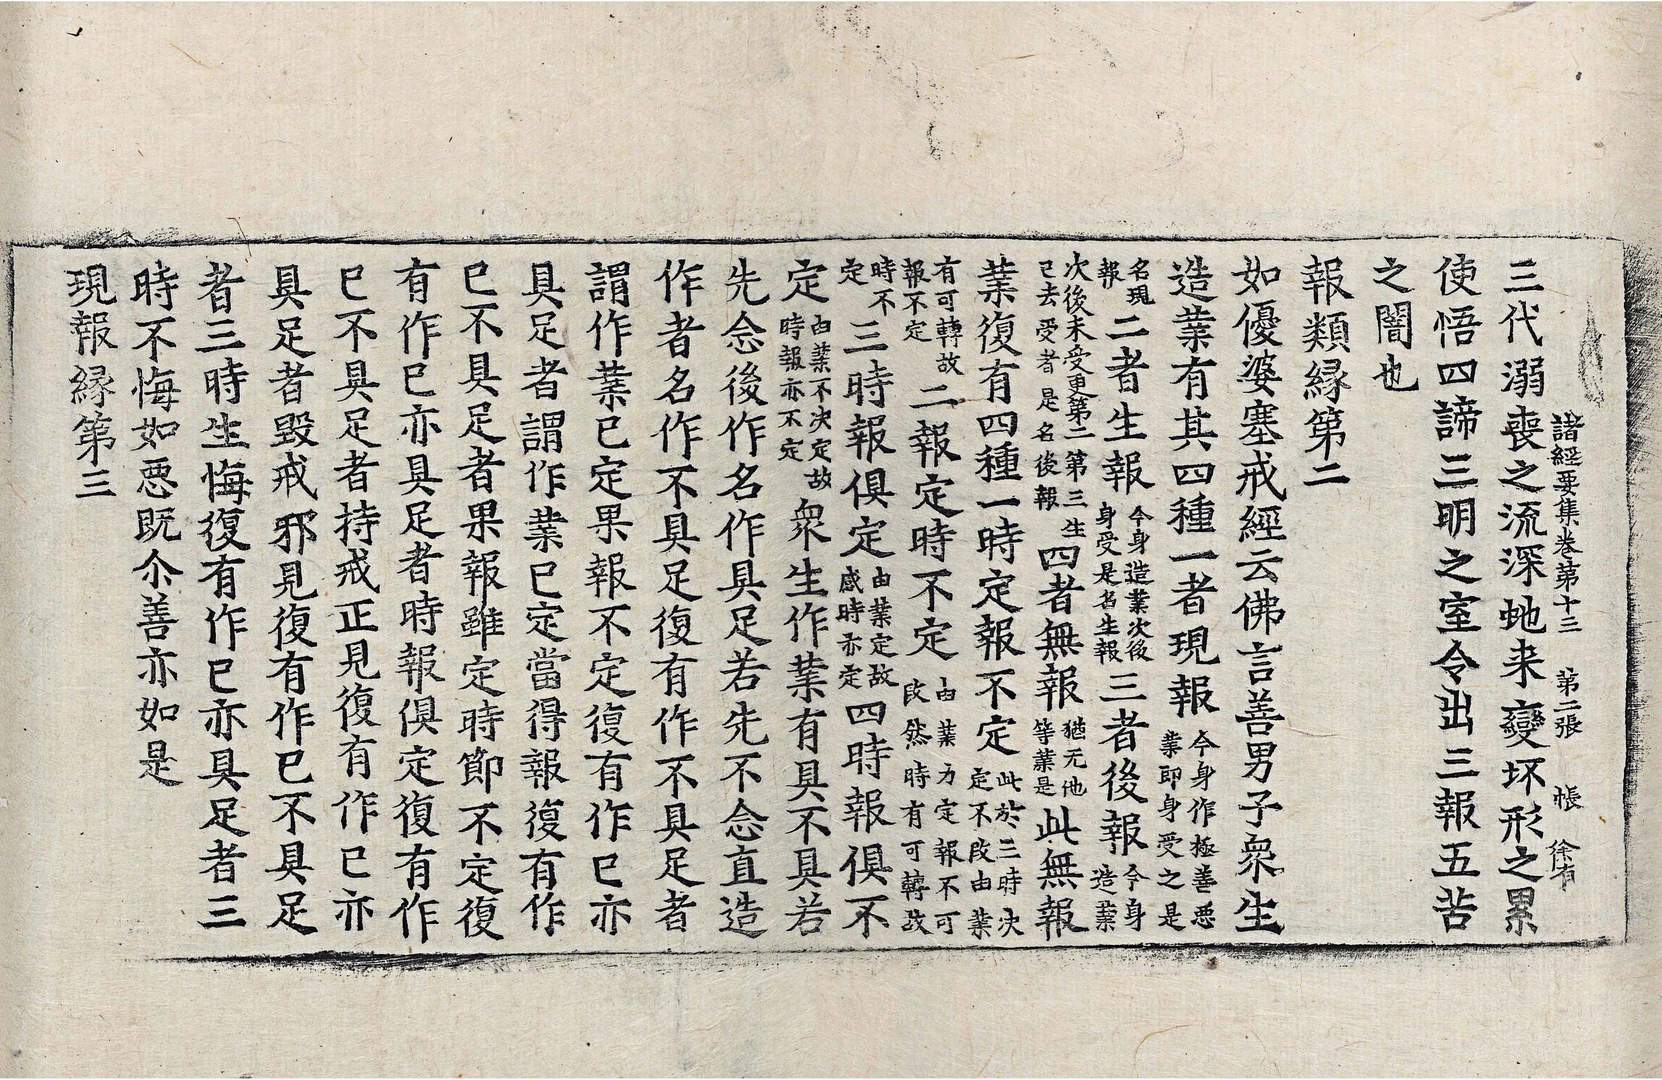 諸經要集卷第十三　第二張　帳　徐有
三代溺喪之流深虵来變坏形之累
使悟四諦三明之室令出三報五苦
之闇也
報類縁第二
如優婆塞戒經云佛言善男子衆生
造業有其四種一者現報今身作極善惡業即身受之是
名現報二者生報今身造業次後身受是名生報三者後報今身造業
次後未受更第二第三生已去受者是名後報四者無報猶无他等業是此無報
業復有四種一時定報不定此於三時決定不改由業
有可轉故報不定二報定時不定由業力定報不可改然時有可轉故
時不定三時報俱定由業定故感時亦定四時報俱不
定由業不決定故時報亦不定衆生作業有具不具若
先念後作名作具足若先不念直造
作者名作不具足復有作不具足者
謂作業已定果報不定復有作已亦
具足者謂作業已定當得報復有作
已不具足者果報雖定時節不定復
有作已亦具足者時報俱定復有作
已不具足者持戒正見復有作已亦
具足者毀戒邪見復有作已不具足
者三時生悔復有作已亦具足者三
時不悔如惡既尒善亦如是
現報縁第三